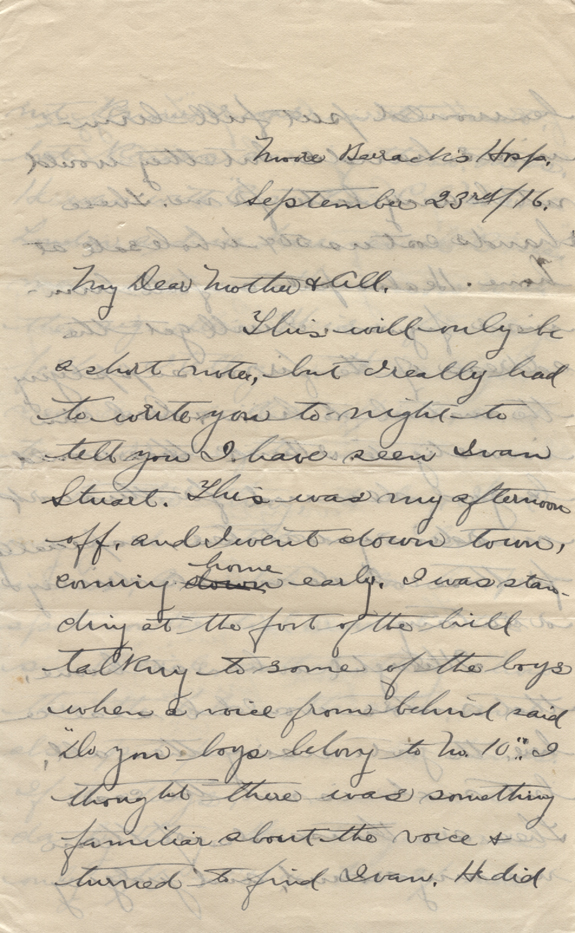 Moore Barack's Hosp.
September 23rd/16.
My Dear Mother & All.
This will only be
a short note, but I really had
to write you to-night to
tell you I have seen Ivan
Stuart. This was my afternoon
off, and I went down town,
coming down home early. I was stan-
ding at the foot of the hill
talking to some of the boys
when a voice from behind said
"Do you boys belong to No. 10." I
thought there was something
familiar about the voice &
turned to find Ivan. He did